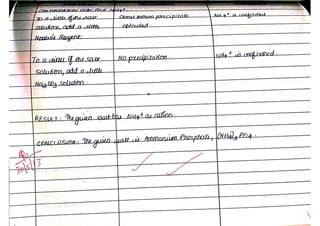 CONFIRMATION
To a little of the salt
solution, add a little
Nessler's Reagent
Camel brown precipitate
obtained.
NH4+ is confirmed.
To a little of the salt
solution, add a little
Na2CO3 solution.
No precipitation.
NH4+ is confirmed.
RESULT: The given salt has NH4+ as cation.
CONCLUSION: The given salt is Ammonium Phosphate, (NH4)3 PO4.